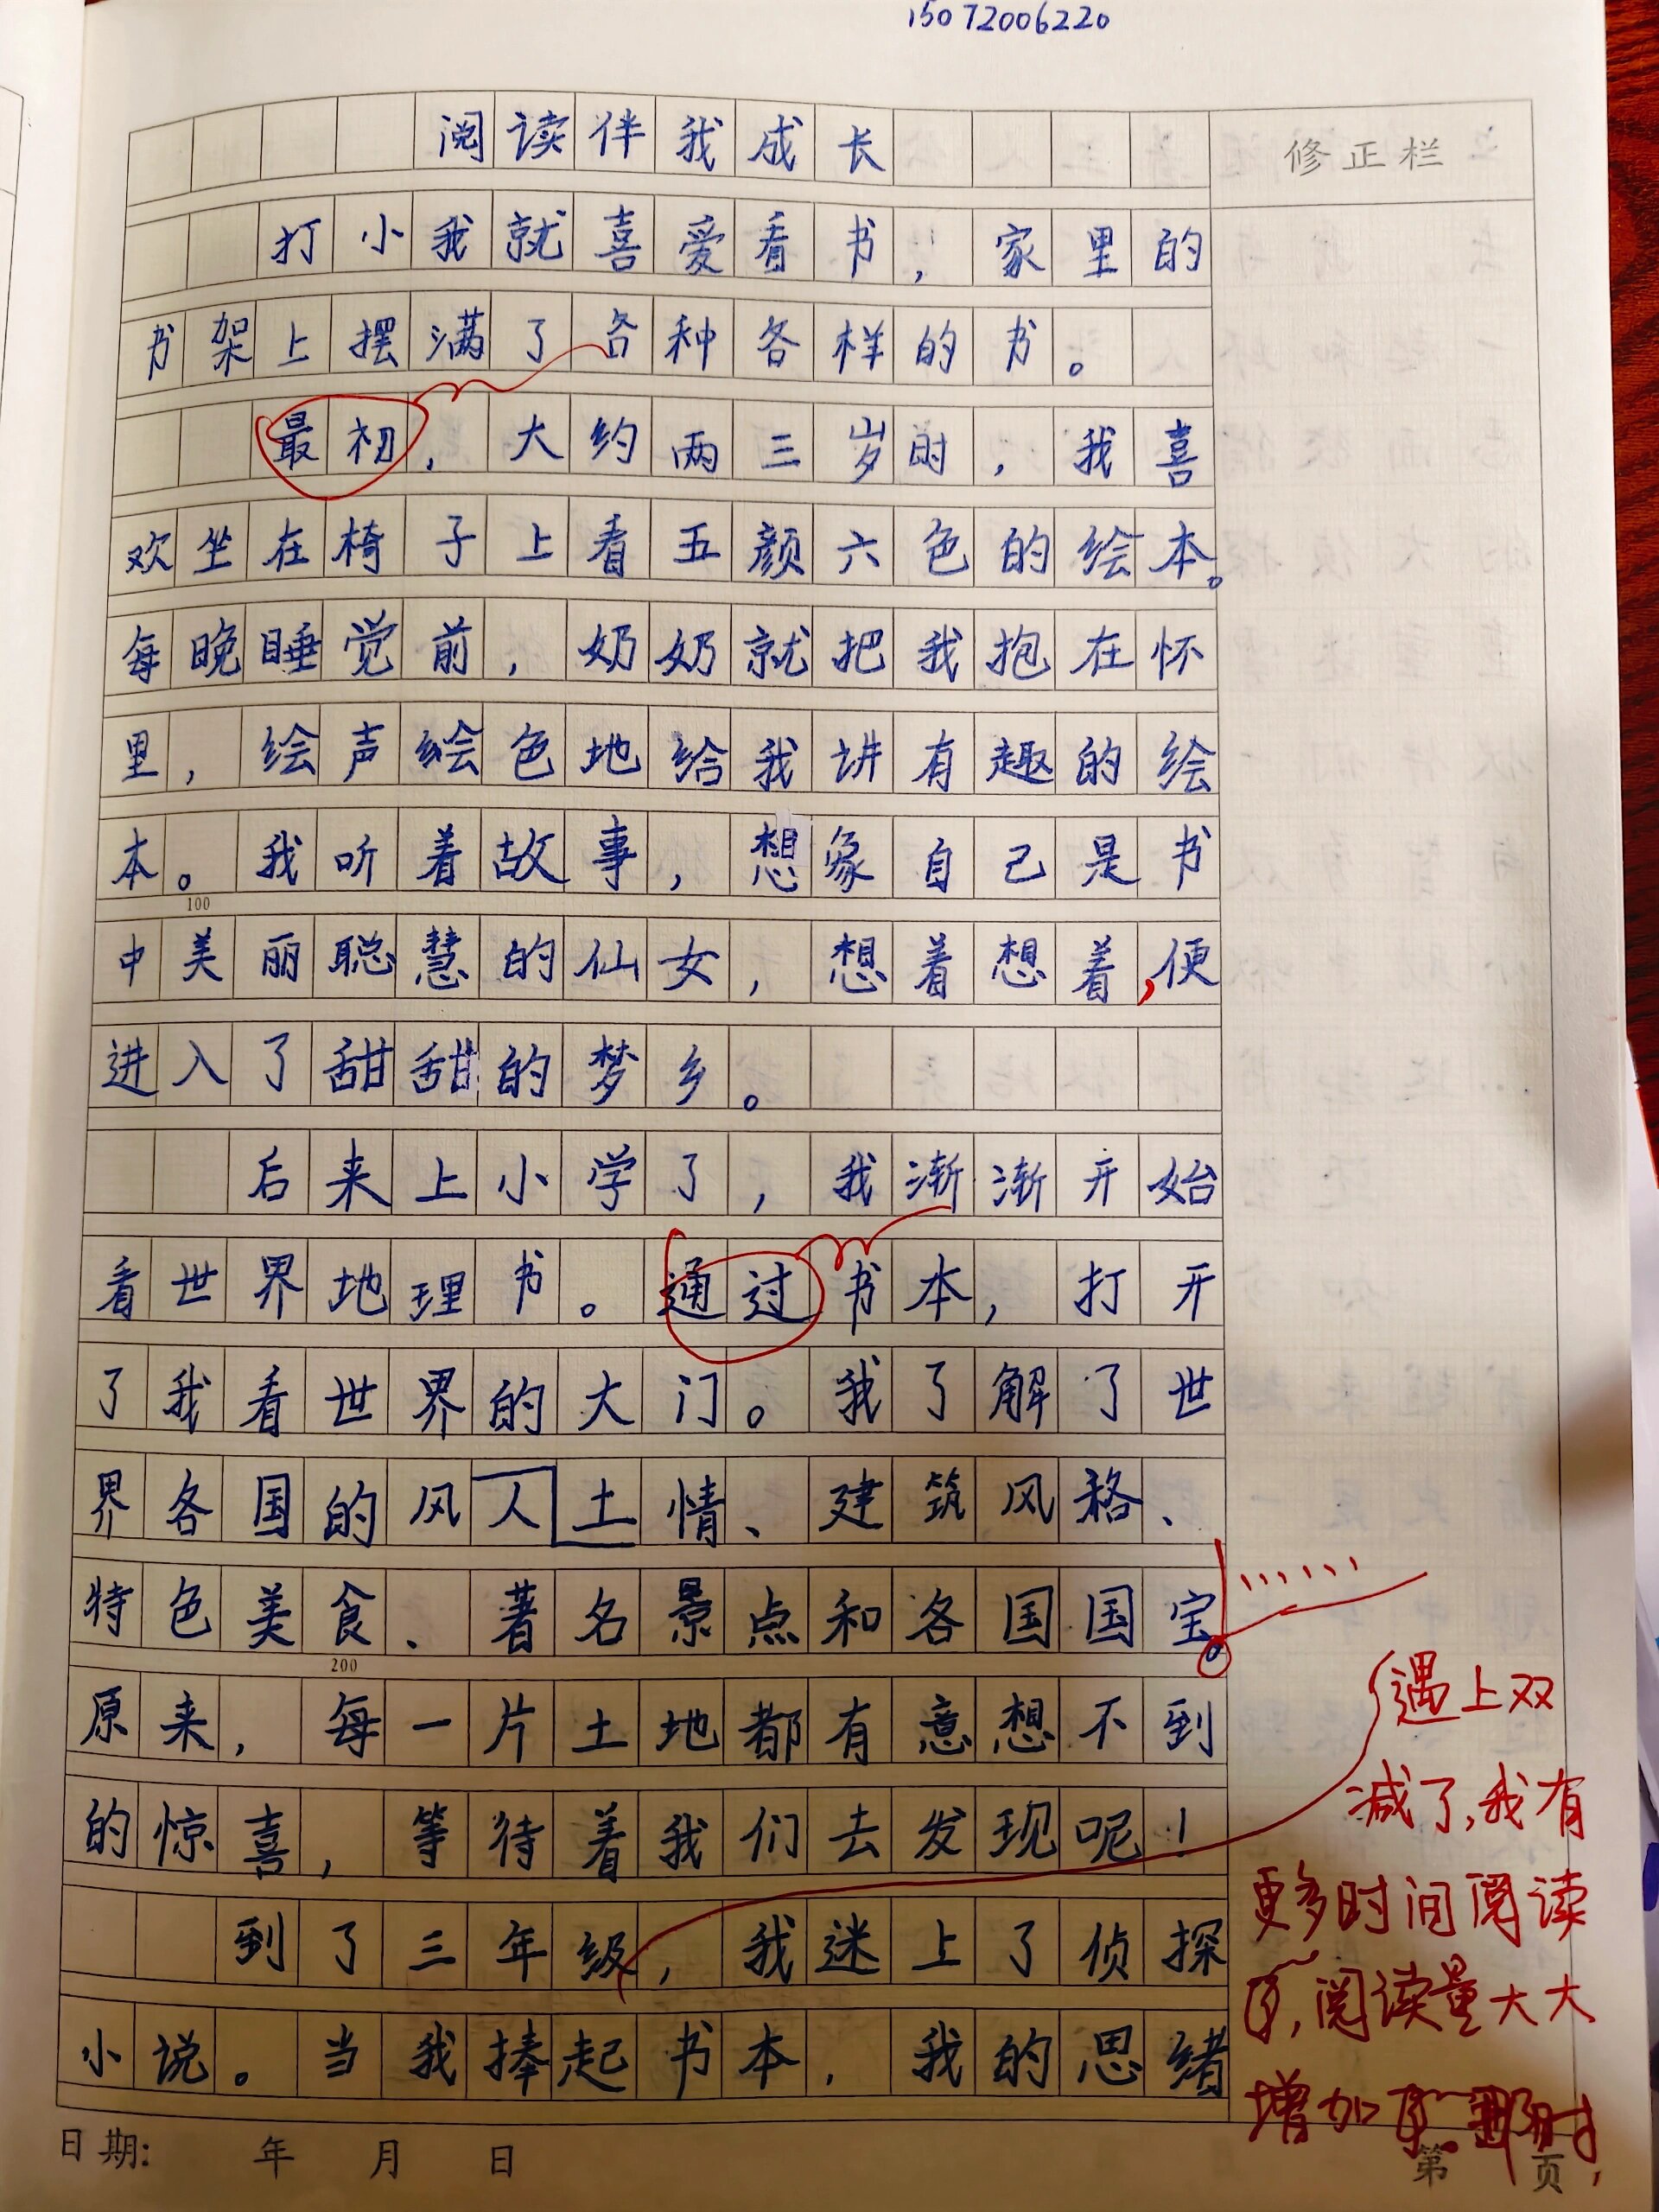 15072006220
阅读伴我成长
修正栏
打小我就喜爱看书，家里的
书架上摆满了各种各样的书。
最初，大约两三岁时，我喜
欢坐在椅子上看五颜六色的绘本。
每晚睡觉前，奶奶就把我抱在怀
里，绘声绘色地给我讲有趣的绘
本。我听着故事，想象自己是书
100
中美丽聪慧的仙女，想着想着，便
进入了甜甜的梦乡。
后来上小学了，我渐渐开始
看世界地理书。通过书本，打开
了我看世界的大门。我了解了世
界各国的风人土情、建筑风格、
特色美食、著名景点和各国国宝。……
200
原来，每一片土地都有意想不到
的惊喜，等待着我们去发现呢！
到了三年级，我迷上了侦探
小说。当我捧起书本，我的思绪
遇上双
减了，我有
更多时间阅读
了，阅读量大大
增加了。那时，
日期： 年 月 日
第 页